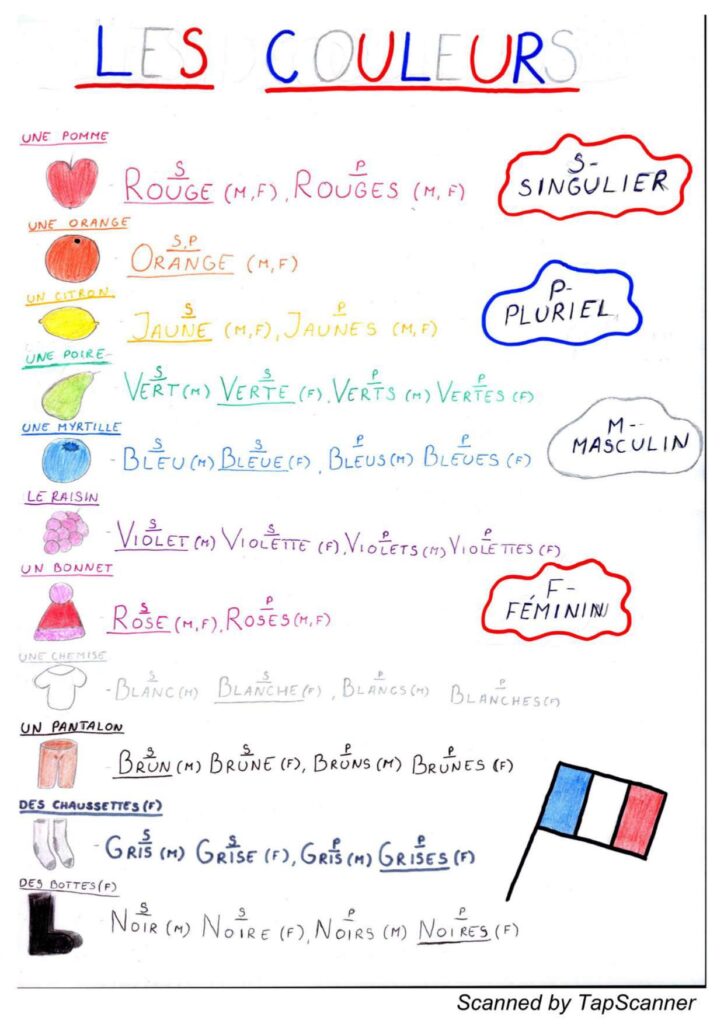 LES COULEURS
UNE POMME
S P
ROUGE (M,F), ROUGES (M, F)
S-
SINGULIER
UNE ORANGE
S,P
ORANGE (M,F)
UN CITRON
S P
JAUNE (M,F), JAUNES (M, F)
P-
PLURIEL
UNE POIRE
S S P P
VERT (M) VERTE (F), VERTS (M) VERTES (F)
UNE MYRTILLE
S S P P
- BLEU (M) BLEUE (F), BLEUS (M) BLEUES (F)
M-
MASCULIN
LE RAISIN
S S P P
- VIOLET (M) VIOLETTE (F), VIOLETS (M) VIOLETTES (F)
UN BONNET
S P
ROSE (M,F), ROSES (M,F)
F-
FÉMININ
UNE CHEMISE
S S P P
- BLANC (M) BLANCHE (F), BLANCS (M) BLANCHES (F)
UN PANTALON
S S P P
BRUN (M) BRUNE (F), BRUNS (M) BRUNES (F)
DES CHAUSSETTES (F)
S S P P
- GRIS (M) GRISE (F), GRIS (M) GRISES (F)
DES BOTTES (F)
S S P P
NOIR (M) NOIRE (F), NOIRS (M) NOIRES (F)
Scanned by TapScanner